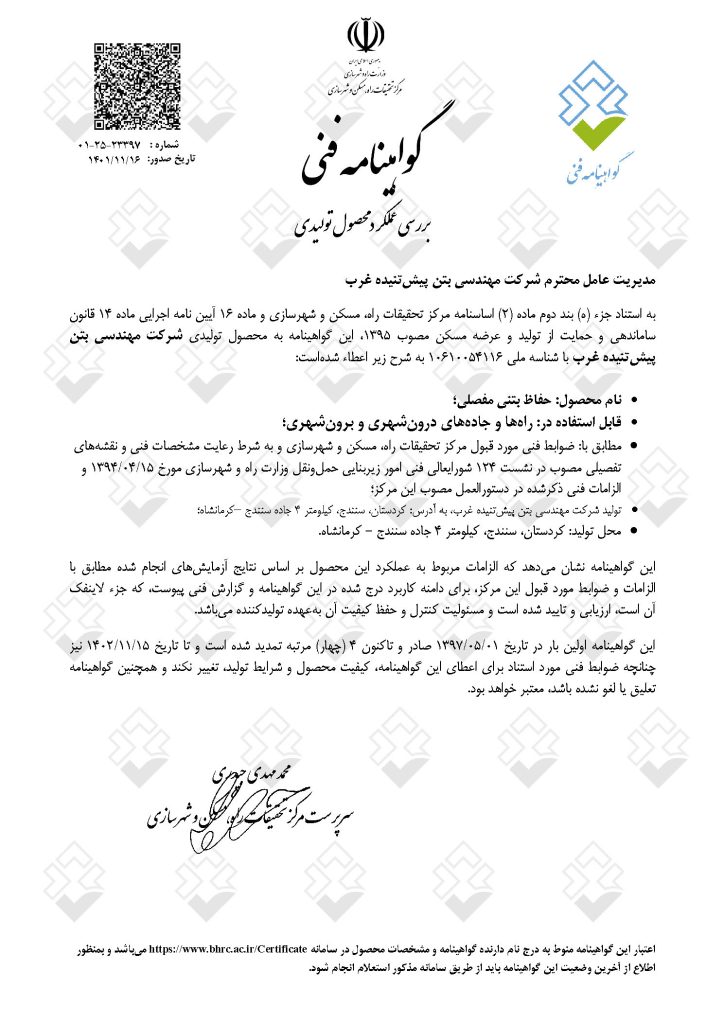 جمهوری اسلامی ایران
وزارت راه و شهرسازی
مرکز تحقیقات راه، مسکن و شهرسازی
شماره : ۲۳۳۹۷-۲۵-۰۱
تاریخ صدور: ۱۴۰۱/۱۱/۱۶
گواهینامه فنی
گواهینامه فنی
بررسی عملکرد محصول تولیدی
مدیریت عامل محترم شرکت مهندسی بتن پیش‌تنیده غرب
به استناد جزء (ه) بند دوم ماده (۲) اساسنامه مرکز تحقیقات راه، مسکن و شهرسازی و ماده ۱۶ آیین نامه اجرایی ماده ۱۴ قانون
ساماندهی و حمایت از تولید و عرضه مسکن مصوب ۱۳۹۵، این گواهینامه به محصول تولیدی شرکت مهندسی بتن
پیش‌تنیده غرب با شناسه ملی ۱۰۶۱۰۰۵۴۱۱۶ به شرح زیر اعطاء شده‌است:
• نام محصول: حفاظ بتنی مفصلی؛
• قابل استفاده در: راه‌ها و جاده‌های درون‌شهری و برون‌شهری؛
• مطابق با: ضوابط فنی مورد قبول مرکز تحقیقات راه، مسکن و شهرسازی و به شرط رعایت مشخصات فنی و نقشه‌های
تفصیلی مصوب در نشست ۱۲۴ شورایعالی فنی امور زیربنایی حمل‌ونقل وزارت راه و شهرسازی مورخ ۱۳۹۴/۰۴/۱۵ و
الزامات فنی ذکرشده در دستورالعمل مصوب این مرکز؛
• تولید شرکت مهندسی بتن پیش‌تنیده غرب، به آدرس: کردستان، سنندج، کیلومتر ۴ جاده سنندج –کرمانشاه؛
• محل تولید: کردستان، سنندج، کیلومتر ۴ جاده سنندج – کرمانشاه.
این گواهینامه نشان می‌دهد که الزامات مربوط به عملکرد این محصول بر اساس نتایج آزمایش‌های انجام شده مطابق با
الزامات و ضوابط مورد قبول این مرکز، برای دامنه کاربرد درج شده در این گواهینامه و گزارش فنی پیوست، که جزء لاینفک
آن است، ارزیابی و تایید شده است و مسئولیت کنترل و حفظ کیفیت آن به‌عهده تولیدکننده می‌باشد.
این گواهینامه اولین بار در تاریخ ۱۳۹۷/۰۵/۰۱ صادر و تاکنون ۴ (چهار) مرتبه تمدید شده است و تا تاریخ ۱۴۰۲/۱۱/۱۵ نیز
چنانچه ضوابط فنی مورد استناد برای اعطای این گواهینامه، کیفیت محصول و شرایط تولید، تغییر نکند و همچنین گواهینامه
تعلیق یا لغو نشده باشد، معتبر خواهد بود.
محمد مهدی حیدری
سرپرست مرکز تحقیقات راه، مسکن و شهرسازی
اعتبار این گواهینامه منوط به درج نام دارنده گواهینامه و مشخصات محصول در سامانه https://www.bhrc.ac.ir/Certificate می‌باشد و بمنظور
اطلاع از آخرین وضعیت این گواهینامه باید از طریق سامانه مذکور استعلام انجام شود.